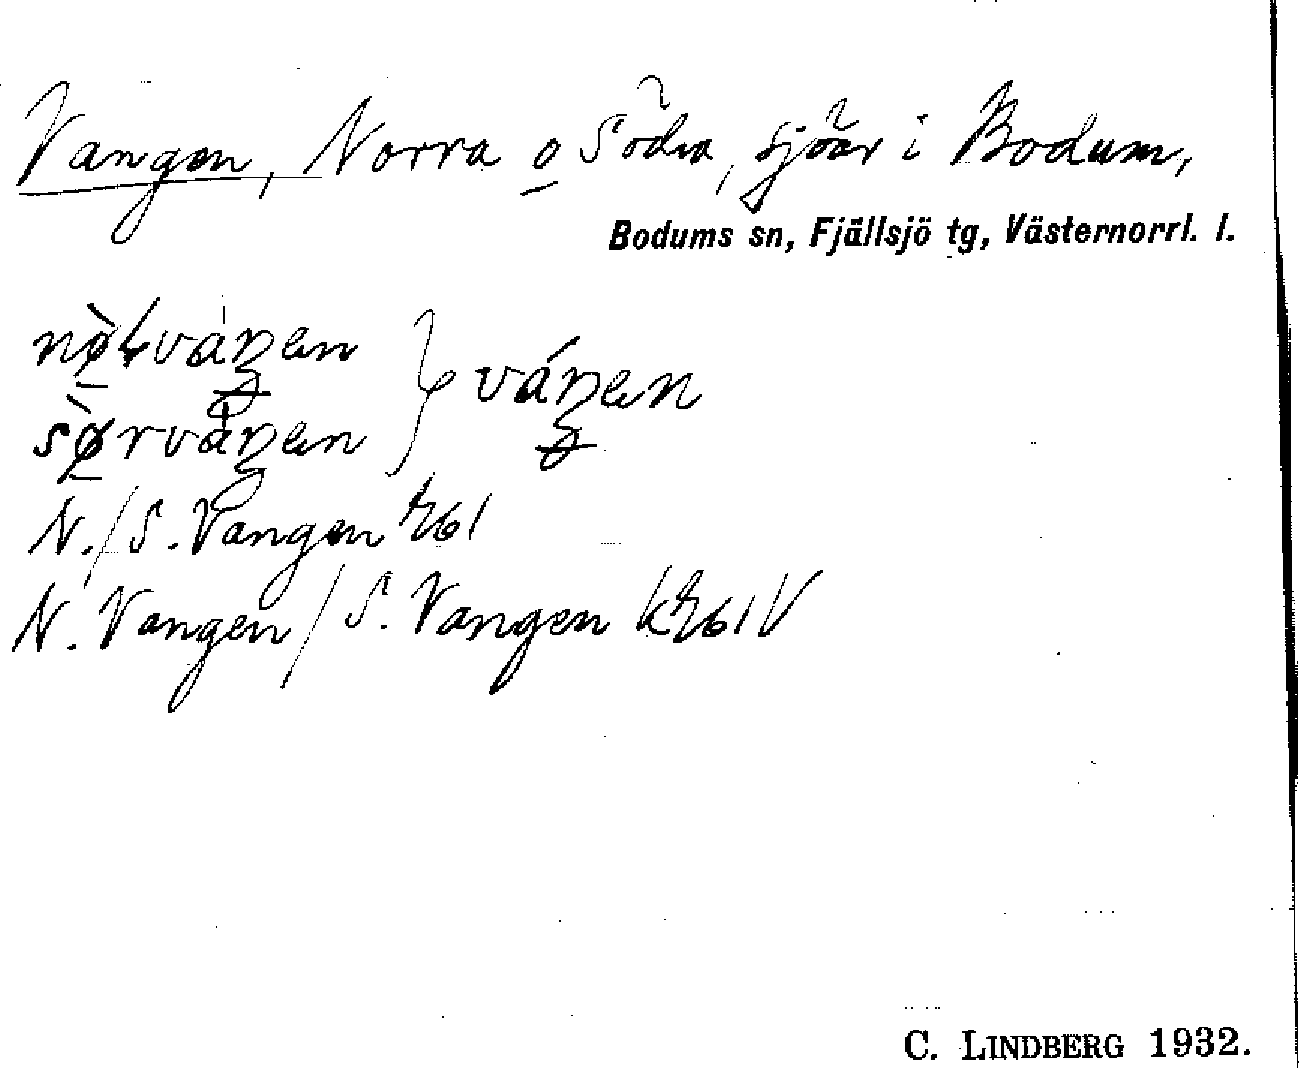 Vangen, Norra o Södra, sjöar i Bodum,
Bodums sn, Fjällsjö tg, Västernorrl. l.
nø̀ɽváŋen } váŋen
sø̀rváŋen
N./S. Vangen
N. Vangen/S. Vangen
C. LINDBERG 1932.